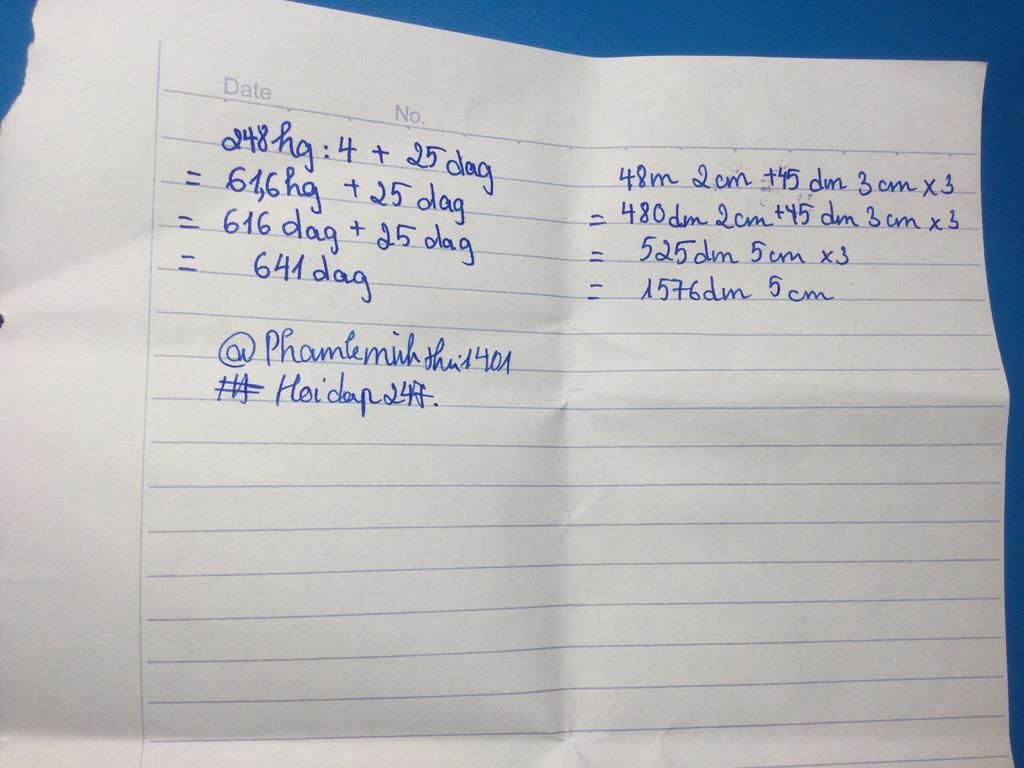 Date
No.
248hg : 4 + 25dag
= 61,6hg + 25 dag
= 616 dag + 25 dag
= 641dag
@Phamleminhthu1401
# Hoidap247.
48m 2cm +45 dm 3 cm x 3
= 480dm 2cm+45 dm 3 cm x 3
= 525dm 5cm x3
= 1576dm 5cm